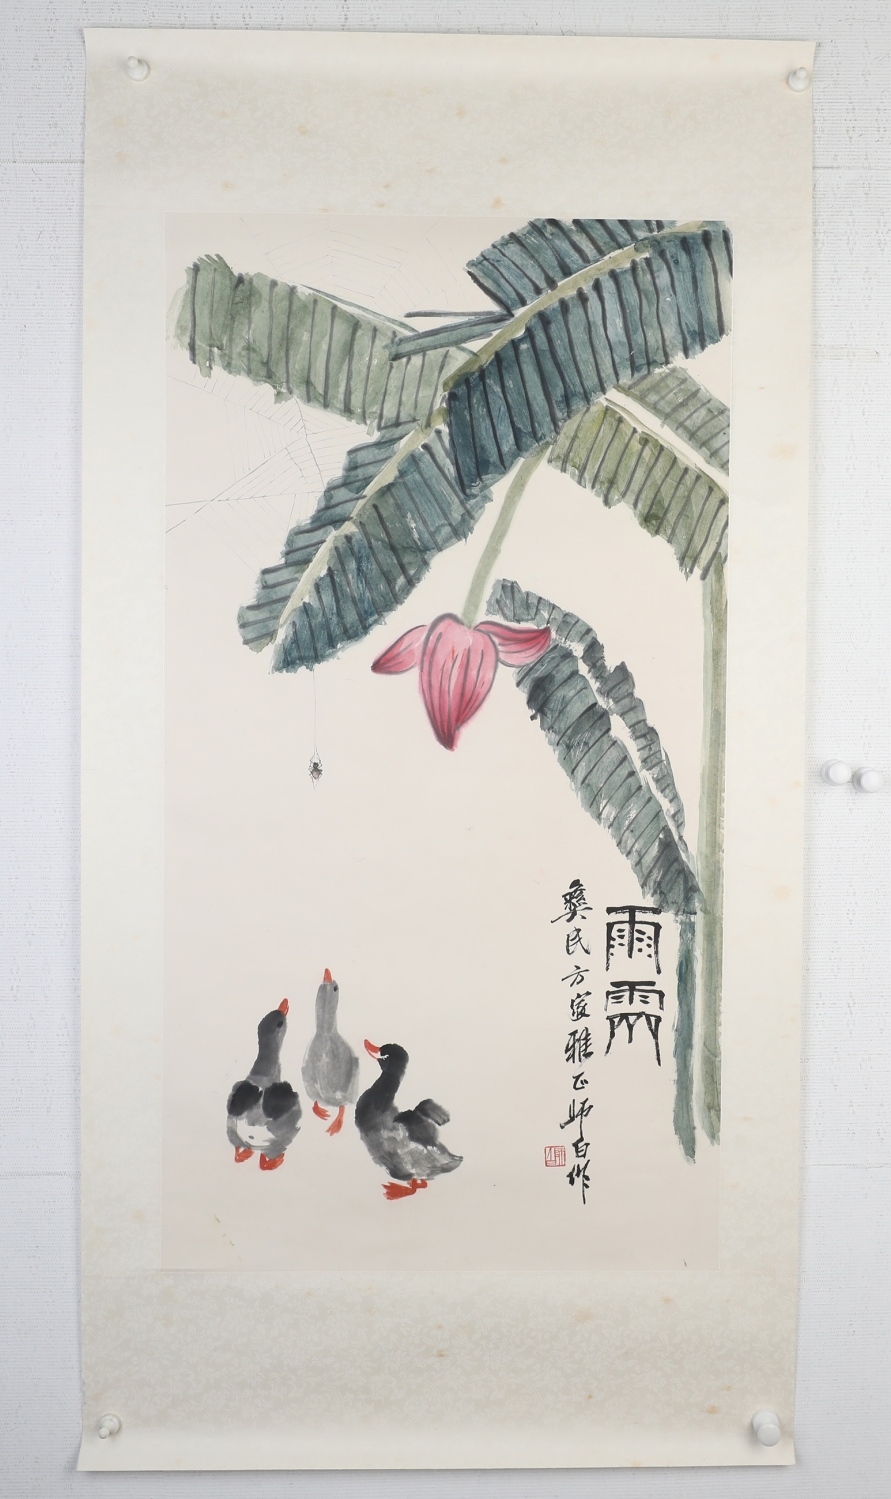 雨
彝民方家雅正師白作